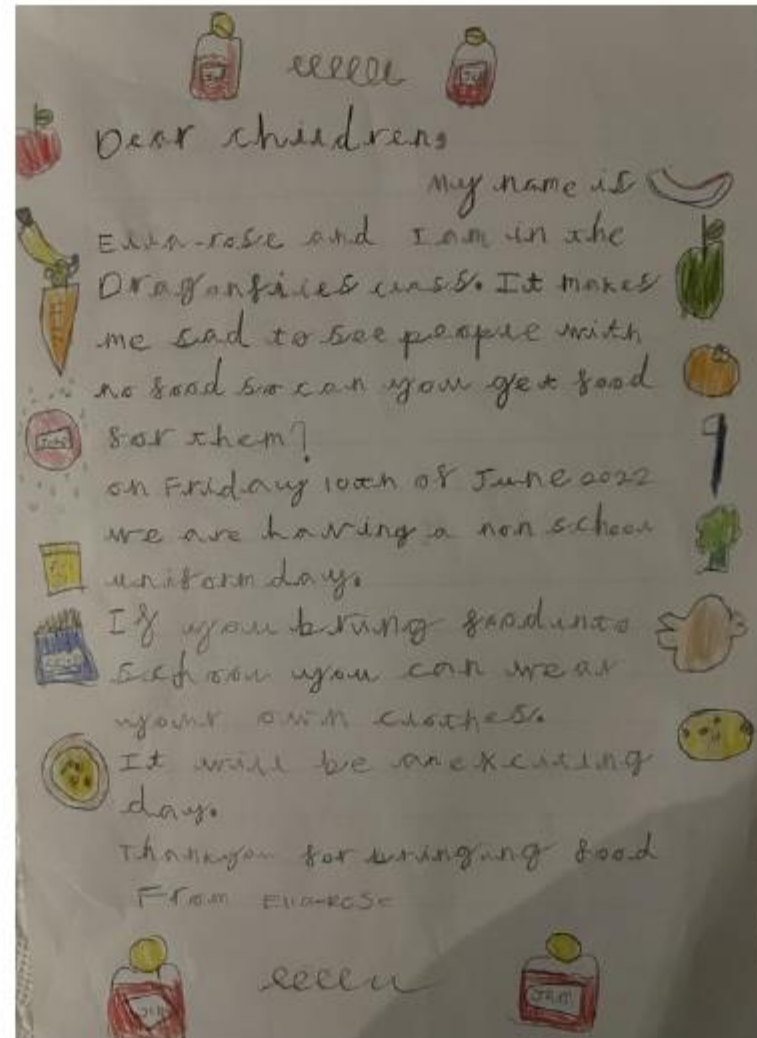 Dear children,
My name is
Ella-rose and I am in the
Dragonflies class. It makes
me sad to see people with
no food so can you get food
for them?
on Friday 10th of June 2022
we are having a non school
uniform day.
If you bring food into
school you can wear
your own clothes.
It will be an exciting
day.
Thankyou for bringing food
From Ella-Rose
JAM